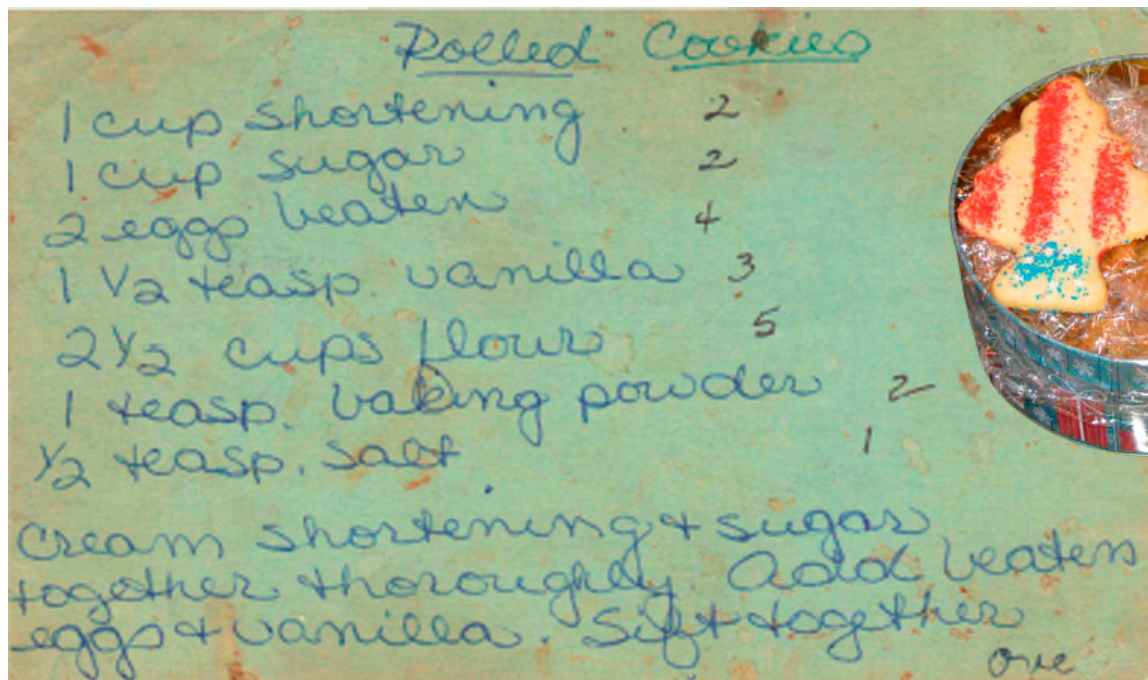 Rolled Cookies
1 cup shortening 2
1 cup sugar 2
2 eggs beaten 4
1 1/2 teasp. vanilla 3
2 1/2 cups flour 5
1 teasp. baking powder 2
1/2 teasp. salt 1
Cream shortening + sugar
together thoroughly. Add beaten
eggs + vanilla. Sift together